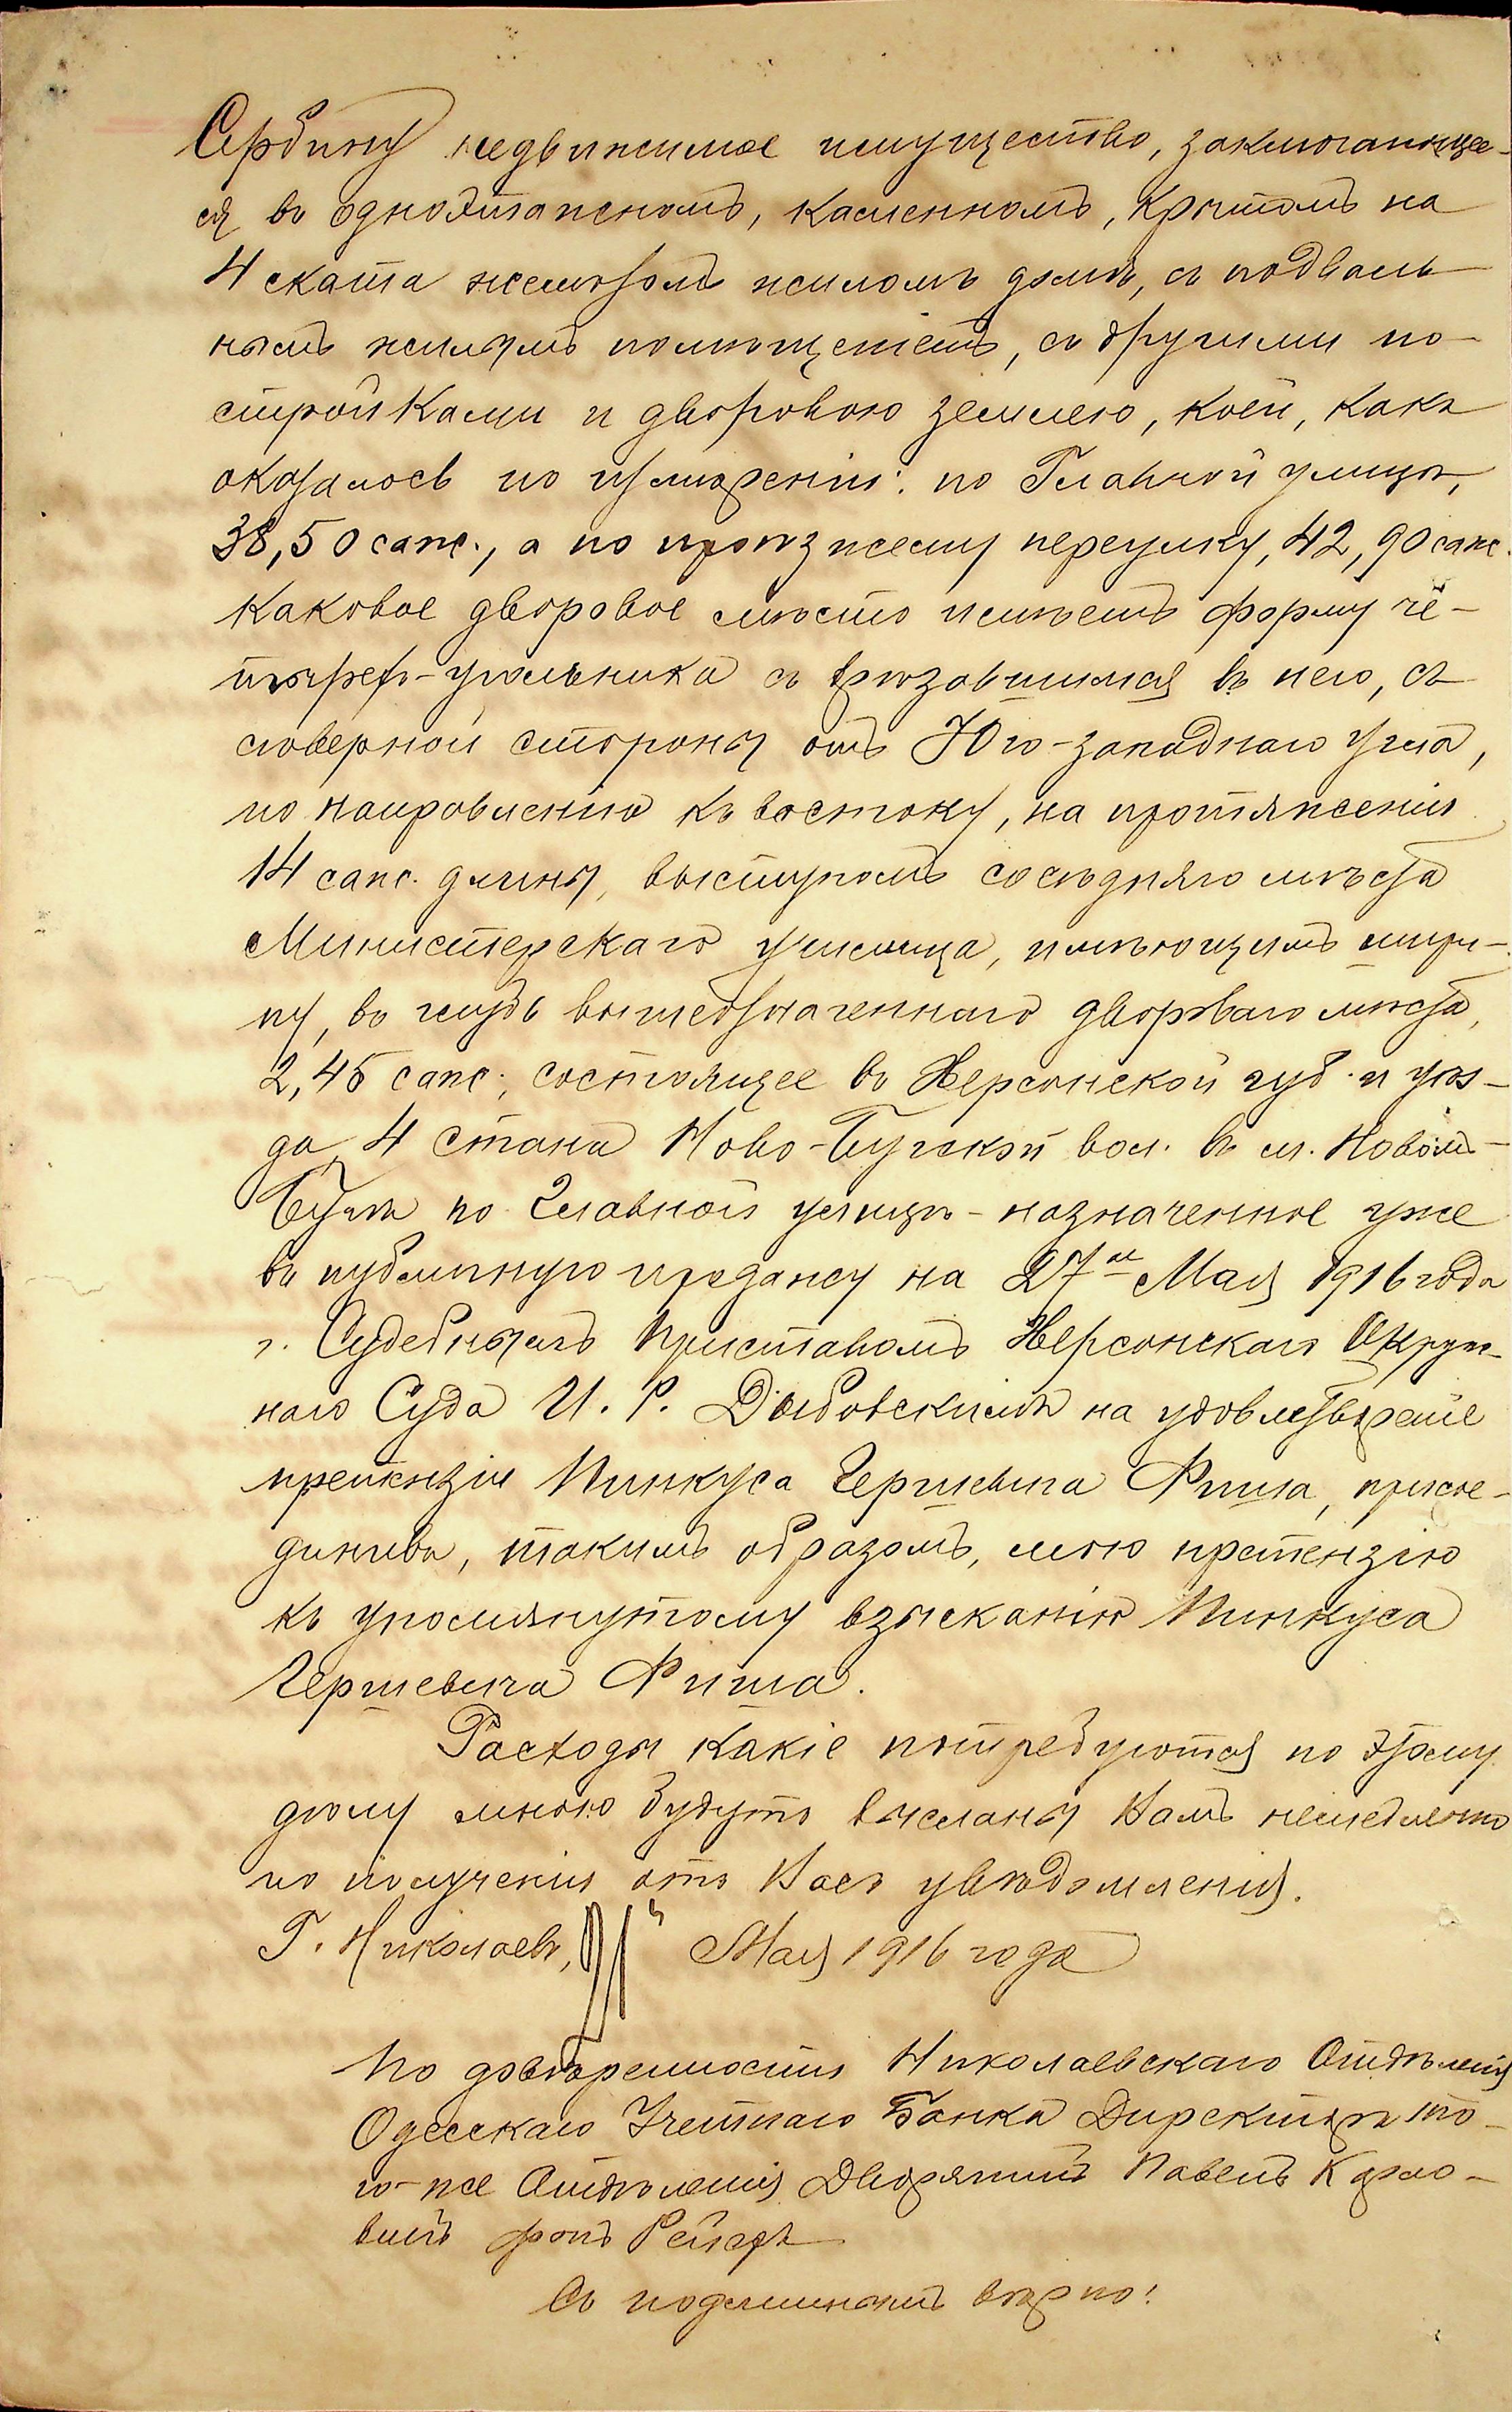 Сербину недвижимое имущество, заключающее-
ся въ одноэтажномъ, каменномъ, крытомъ на
4 ската желѣзомъ жиломъ домѣ, съ подваль-
нымъ жилымъ помѣщеніемъ, съ другими по-
стройками и дворовою землею, коей, какъ
оказалось по измѣренію: по Главной улицѣ,
38,50 саж., а по проѣзжему переулку, 42,90 саж.
каковое дворовое мѣсто имѣетъ форму че-
тырех-угольника съ врѣзавшимся въ него, съ
сѣверной стороны отъ Юго-западнаго угла,
по направленію къ востоку, на протяженіи
14 саж. длины, выступомъ сосѣдняго мѣста
Министерскаго училища, имѣющимъ шири-
ну, въ глубь вышеозначеннаго двороваго мѣста,
2,45 саж., состоящее въ Херсонской губ. и уѣз-
да, 4 стана Ново-Бугской вол. въ м. Новомъ-
Бугѣ по Главной улицѣ - назначенное уже
въ публичную продажу на 27е Мая 1916 года
г. Судебнымъ Приставомъ Херсонскаго Окруж-
наго Суда И. Р. Дыбовскимъ на удовлетвореніе
претензіи Пинкуса Гершевича Фиша, присое-
динивъ, такимъ образомъ, мою претензію
къ упомянутому взысканію Пинкуса
Гершевича Фиша.
Расходы какіе потребуются по этому
дѣлу мною будутъ высланы Вамъ немедленно
по полученіи отъ Васъ увѣдомленія.
Г. Николаевъ, Мая 1916 года
По довѣренности Николаевскаго Отдѣленія
Одесскаго Учетнаго Банка Директоръ то-
го-же Отдѣленія Дворянинъ Павелъ Карло-
вичъ фонъ
Съ подлиннымъ вѣрно!